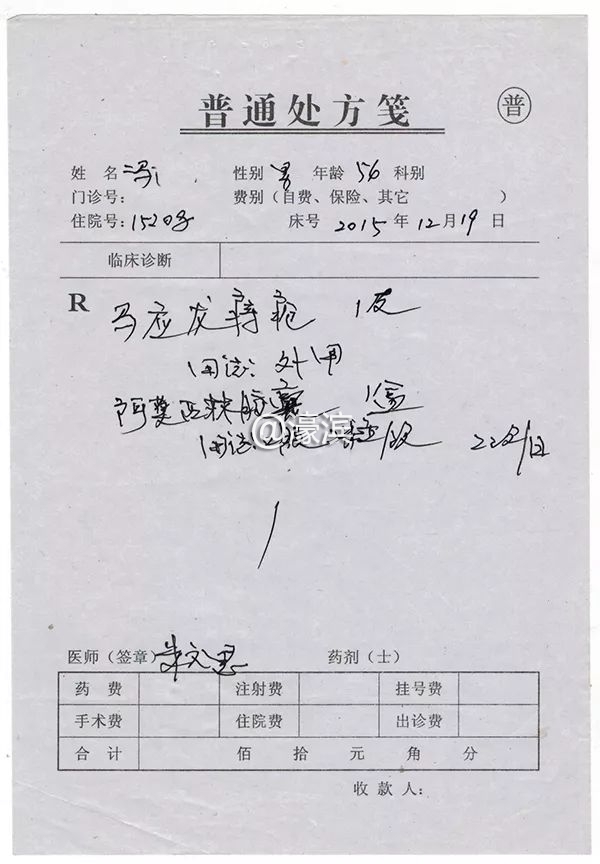 普通处方笺
普
姓 名 性别 男 年龄 56 科别
门诊号: 费别（自费、保险、其它 ）
住院号: 床号 2015 年 12 月 19 日
临床诊断
R 马应发痔疮 1支
用法: 外用
阿莫西林胶囊 1盒
@濠滨
用法:
医师（签章） 药剂（士）
药 费 注射费 挂号费
手术费 住院费 出诊费
合 计 佰 拾 元 角 分
收 款 人: